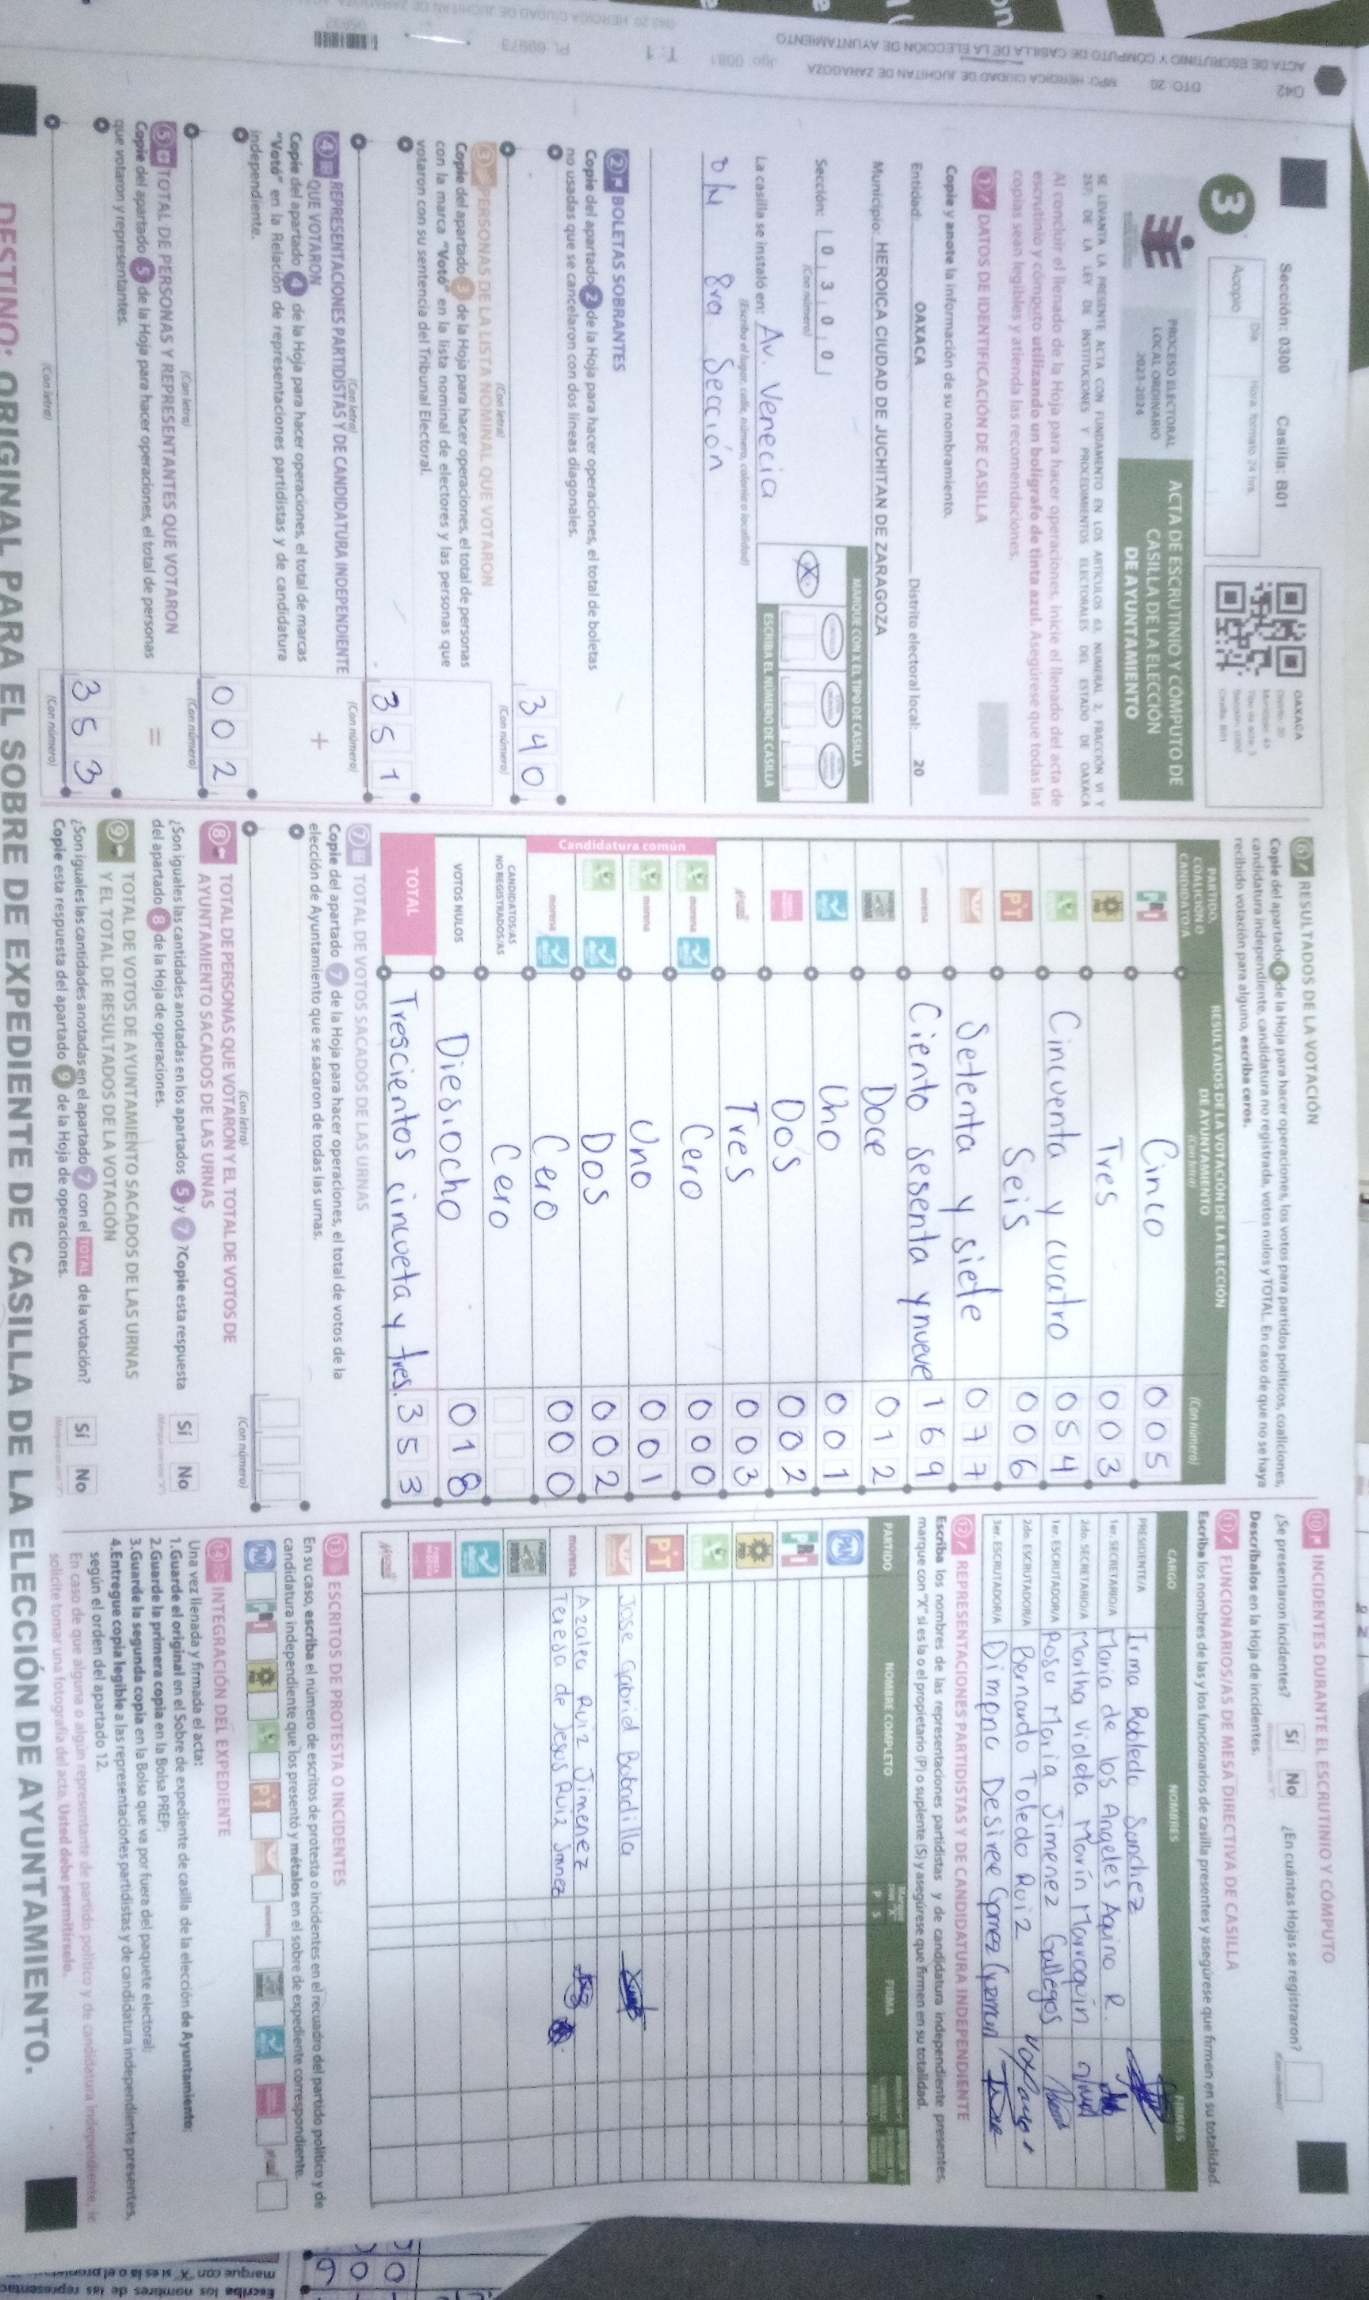 Sección: 0300 Casilla: B01
3
Acopio
Día
Hora, formato 24 hrs.
OAXACA
PROCESO ELECTORAL
LOCAL ORDINARIO
2023-2024
ACTA DE ESCRUTINIO Y CÓMPUTO DE
CASILLA DE LA ELECCIÓN
DE AYUNTAMIENTO
SE LEVANTA LA PRESENTE ACTA CON FUNDAMENTO EN LOS ARTÍCULOS 63, NUMERAL 2, FRACCIÓN VI Y
257; DE LA LEY DE INSTITUCIONES Y PROCEDIMIENTOS ELECTORALES DEL ESTADO DE OAXACA
Al concluir el llenado de la Hoja para hacer operaciones, inicie el llenado del acta de
escrutinio y cómputo utilizando un bolígrafo de tinta azul. Asegúrese que todas las
copias sean legibles y atienda las recomendaciones.
1 DATOS DE IDENTIFICACIÓN DE CASILLA
Copie y anote la información de su nombramiento.
Entidad: OAXACA Distrito electoral local: 20
Municipio: HEROICA CIUDAD DE JUCHITAN DE ZARAGOZA
Sección: 0 3 0 0
(Con número)
MARQUE CON X EL TIPO DE CASILLA
X
ESCRIBA EL NÚMERO DE CASILLA
La casilla se instaló en: Av. Venecia
(Escriba el lugar, calle, número, colonia o localidad)
8va Sección
2 BOLETAS SOBRANTES
Copie del apartado 2 de la Hoja para hacer operaciones, el total de boletas
no usadas que se cancelaron con dos líneas diagonales.
340
(Con letra) (Con número)
3 PERSONAS DE LA LISTA NOMINAL QUE VOTARON
Copie del apartado 3 de la Hoja para hacer operaciones, el total de personas
con la marca "Votó" en la lista nominal de electores y las personas que
votaron con su sentencia del Tribunal Electoral.
351
(Con letra) (Con número)
4 REPRESENTACIONES PARTIDISTAS Y DE CANDIDATURA INDEPENDIENTE
QUE VOTARON
+
Copie del apartado 4 de la Hoja para hacer operaciones, el total de marcas
"Votó" en la Relación de representaciones partidistas y de candidatura
independiente.
002
(Con letra) (Con número)
5 TOTAL DE PERSONAS Y REPRESENTANTES QUE VOTARON
=
Copie del apartado 5 de la Hoja para hacer operaciones, el total de personas
que votaron y representantes.
353
(Con letra) (Con número)
6 RESULTADOS DE LA VOTACIÓN
Copie del apartado 6 de la Hoja para hacer operaciones, los votos para partidos políticos, coaliciones,
candidatura independiente, candidatura no registrada, votos nulos y TOTAL. En caso de que no se haya
recibido votación para alguno, escriba ceros.
PARTIDO,
COALICIÓN O
CANDIDATO/A
RESULTADOS DE LA VOTACIÓN DE LA ELECCIÓN
DE AYUNTAMIENTO
(Con letra) (Con número)
Cinco 005
Tres 003
Cincuenta y cuatro 054
PT Seis 006
Setenta y siete 077
morena Ciento sesenta y nueve 169
Doce 012
Uno 001
Dos 002
Tres 003
Candidatura común
morena Cero 000
morena Uno 001
Dos 002
morena Cero 000
CANDIDATOS/AS
NO REGISTRADOS/AS Cero
VOTOS NULOS Diesiocho 018
TOTAL Trescientos cincueta y tres. 353
7 TOTAL DE VOTOS SACADOS DE LAS URNAS
Copie del apartado 7 de la Hoja para hacer operaciones, el total de votos de la
elección de Ayuntamiento que se sacaron de todas las urnas.
(Con letra) (Con número)
8 TOTAL DE PERSONAS QUE VOTARON Y EL TOTAL DE VOTOS DE
AYUNTAMIENTO SACADOS DE LAS URNAS
¿Son iguales las cantidades anotadas en los apartados 5 y 7 ?Copie esta respuesta
del apartado 8 de la Hoja de operaciones.
Sí No
9 TOTAL DE VOTOS DE AYUNTAMIENTO SACADOS DE LAS URNAS
Y EL TOTAL DE RESULTADOS DE LA VOTACIÓN
¿Son iguales las cantidades anotadas en el apartado 7 con el TOTAL de la votación?
Copie esta respuesta del apartado 9 de la Hoja de operaciones.
Sí No
10 INCIDENTES DURANTE EL ESCRUTINIO Y CÓMPUTO
¿Se presentaron incidentes? Sí No ¿En cuántas Hojas se registraron?
Descríbalos en la Hoja de incidentes.
11 FUNCIONARIOS/AS DE MESA DIRECTIVA DE CASILLA
Escriba los nombres de las y los funcionarios de casilla presentes y asegúrese que firmen en su totalidad.
CARGO NOMBRES FIRMAS
PRESIDENTE/A Irma Robledo Sanchez
1er. SECRETARIO/A Maria de los Angeles Aquino R.
2do. SECRETARIO/A Martha Violeta Marín Marroquin
1er. ESCRUTADOR/A Rosa Maria Jimenez Gallegos
2do. ESCRUTADOR/A Bernardo Toledo Ruiz
3er. ESCRUTADOR/A Dimpna Desiree Gomez Guzman
12 REPRESENTACIONES PARTIDISTAS Y DE CANDIDATURA INDEPENDIENTE
Escriba los nombres de las representaciones partidistas y de candidatura independiente presentes,
marque con "X" si es la o el propietario (P) o suplente (S) y asegúrese que firmen en su totalidad.
PARTIDO NOMBRE COMPLETO P S FIRMA
PAN
PRD
PT
Jose Gabriel Bobadilla
morena Azalea Ruiz Jimenez
Teresa de Jesus Ruiz Jmnez
13 ESCRITOS DE PROTESTA O INCIDENTES
En su caso, escriba el número de escritos de protesta o incidentes en el recuadro del partido político y de
candidatura independiente que los presentó y métalos en el sobre de expediente correspondiente.
PAN
PT
14 INTEGRACIÓN DEL EXPEDIENTE
Una vez llenada y firmada el acta:
1.Guarde el original en el Sobre de expediente de casilla de la elección de Ayuntamiento;
2.Guarde la primera copia en la Bolsa PREP;
3.Guarde la segunda copia en la Bolsa que va por fuera del paquete electoral;
4.Entregue copia legible a las representaciones partidistas y de candidatura independiente presentes,
según el orden del apartado 12.
En caso de que alguna o algún representante de partido político y de candidatura independiente, le
solicite tomar una fotografía del acta. Usted debe permitírselo.
DESTINO: ORIGINAL PARA EL SOBRE DE EXPEDIENTE DE CASILLA DE LA ELECCIÓN DE AYUNTAMIENTO.
042
DTO: 20
MPO: HEROICA CIUDAD DE JUCHITAN DE ZARAGOZA
ACTA DE ESCRUTINIO Y CÓMPUTO DE CASILLA DE LA ELECCIÓN DE AYUNTAMIENTO
T: 1
Escriba los nombres de las representac